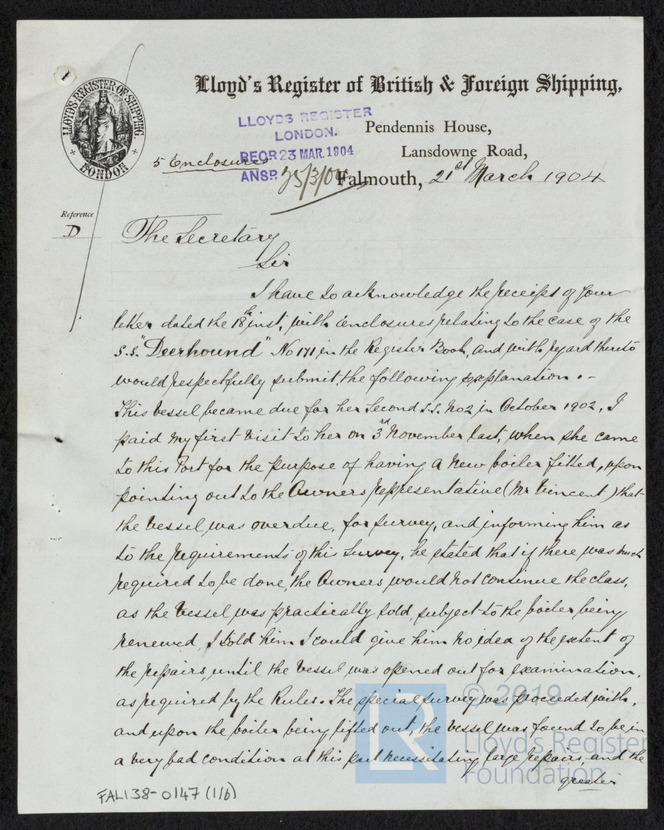 1
LLOYD'S REGISTER OF SHIPPING
LONDON
Lloyd's Register of British & Foreign Shipping,
LLOYD'S REGISTER
LONDON.
RECD 23 MAR. 1904
ANSD 25/3/04
Pendennis House,
Lansdowne Road,
5 Enclosures
Falmouth, 21st March 1904
Reference
D
The Secretary
Sir
I have to acknowledge the receipt of your
letter dated the 18th inst, with enclosures relating to the case of the
S.S. "Deerhound" No 171 in the Register Book, and with regard thereto
would respectfully submit the following explanation.-
This vessel became due for her Second S.S. No 2 in October 1902, I
paid my first visit to her on 3rd November last, when she came
to this Port for the purpose of having a new boiler fitted, upon
pointing out to the Owners representative (Mr Vincent) that
the vessel was overdue, for survey, and informing him as
to the requirements of this survey, he stated that if there was much
required to be done, the Owners would not continue the class,
as the vessel was practically sold, subject to the boiler being
renewed, I told him I could give him no idea of the extent of
the repairs, until the vessel was opened out for examination,
as required by the Rules. The special survey was proceeded with,
and upon the boiler being lifted out, the vessel was found to be in
a very bad condition at this part necessitating large repairs, and the
greater
FAL138-0147 (1/6)
© 2019
Lloyd's Register
Foundation
LR